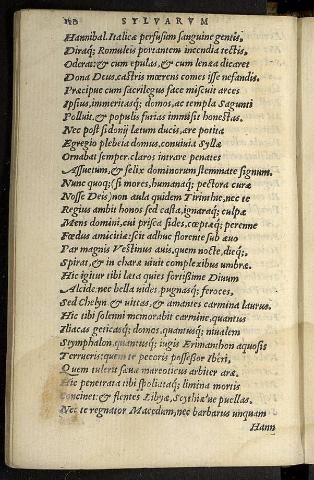 SYLVARVM
Hannibal. Italicæ perfusum sanguine gentis,
Diraq; Romuleis portantem incendia tectis.
Oderat: & cum epulas, & cum lenæa dicaret
Dona Deus, castris mœrens comes isse nefandis.
Præcipue cum sacrilegus face miscuit arces
Ipsius, immeritasq; domos, ac templa Sagunti
Polluit, & populis furias immisit honestas.
Nec post sidonij lætum ducis, ære potita
Egregio plebeia domus. conuiuia Syllæ
Ornabat semper. claros intrare penates
Assuetum, & felix dominorum stemmate signum.
Nunc quoq; (si mores, humanaq; pectora curæ
Nosse Deis) non aula quidem Tirinthie, nec te
Regius ambit honos sed casta, ignaraq; culpæ
Mens domini, cui prisca fides, cœptæq; perenne
Fœdus amicitiæ: scit adhuc florente sub æuo
Par magnis Vestinus auis, quem nocte, dieq;,
Spirat, & in charæ viuit complexibus vmbræ.
Hic igitur tibi læta quies fortissime Diuum
Alcide, nec bella vides, pugnasq; feroces,
Sed Chelyn & vittas, & amantes carmina laurus.
Hic tibi solenni memorabit carmine, quantus
Iliacas geticasq; domos, quantusq; niualem
Stymphalon, quantusq; iugis Erimanthon aquosis
Terrueris: quem te pecoris possessor Iberi,
Quem tulerit sæuæ mareoticus arbiter aræ.
Hic penetrata tibi spoliataq; limina mortis
Concinet: & flentes Libyæ, Scythiæ'ue puellas.
Nec te regnator Macedum, nec barbarus unquam
Hann